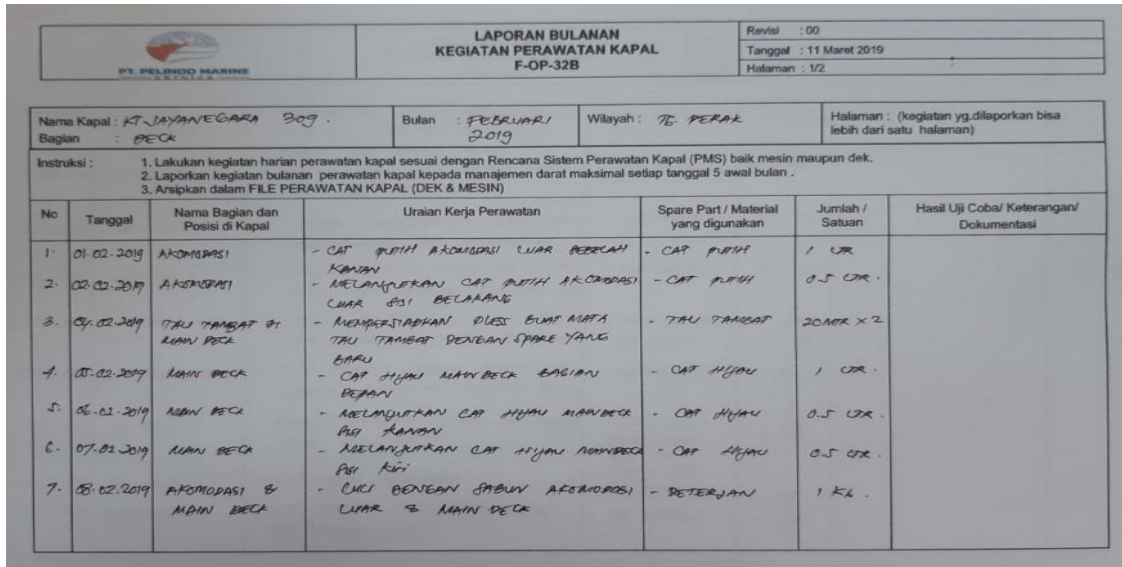 PT. PELINDO MARINE
SERVICE
LAPORAN BULANAN
KEGIATAN PERAWATAN KAPAL
F-OP-32B
Revisi : 00
Tanggal : 11 Maret 2019
Halaman : 1/2
Nama Kapal : KT JAYANEGARA 309.
Bagian : DECK
Bulan : FEBRUARI
2019
Wilayah : TG. PERAK
Halaman : (kegiatan yg.dilaporkan bisa
lebih dari satu halaman)
Instruksi : 1. Lakukan kegiatan harian perawatan kapal sesuai dengan Rencana Sistem Perawatan Kapal (PMS) baik mesin maupun dek.
2. Laporkan kegiatan bulanan perawatan kapal kepada manajemen darat maksimal setiap tanggal 5 awal bulan .
3. Arsipkan dalam FILE PERAWATAN KAPAL (DEK & MESIN)
No Tanggal Nama Bagian dan Uraian Kerja Perawatan Spare Part / Material Jumlah / Hasil Uji Coba/ Keterangan/
Posisi di Kapal yang digunakan Satuan Dokumentasi
1. 01.02.2019 AKOMODASI - CAT PUTIH AKOMODASI LUAR SEBELAH - CAT PUTIH 1 LTR
KANAN
2. 02.02.2019 AKOMODASI - MELANJUTKAN CAT PUTIH AKOMODASI - CAT PUTIH 0.5 LTR.
LUAR SISI BELAKANG
3. 04.02.2019 TALI TAMBAT DI - MEMPERSIAPKAN PLESS BUAT MATA - TALI TAMBAT 20 MTR x 2
MAIN DECK TALI TAMBAT DENGAN SPARE YANG
BARU
4. 05.02.2019 MAIN DECK - CAT HIJAU MAIN DECK BAGIAN - CAT HIJAU 1 LTR.
DEPAN
5. 06.02.2019 MAIN DECK - MELANJUTKAN CAT HIJAU MAIN DECK - CAT HIJAU 0.5 LTR.
SISI KANAN
6. 07.02.2019 MAIN DECK - MELANJUTKAN CAT HIJAU MAIN DECK - CAT HIJAU 0.5 LTR.
SISI KIRI
7. 08.02.2019 AKOMODASI & - CUCI DENGAN SABUN AKOMODASI - DETERJAN 1 KG.
MAIN DECK LUAR & MAIN DECK